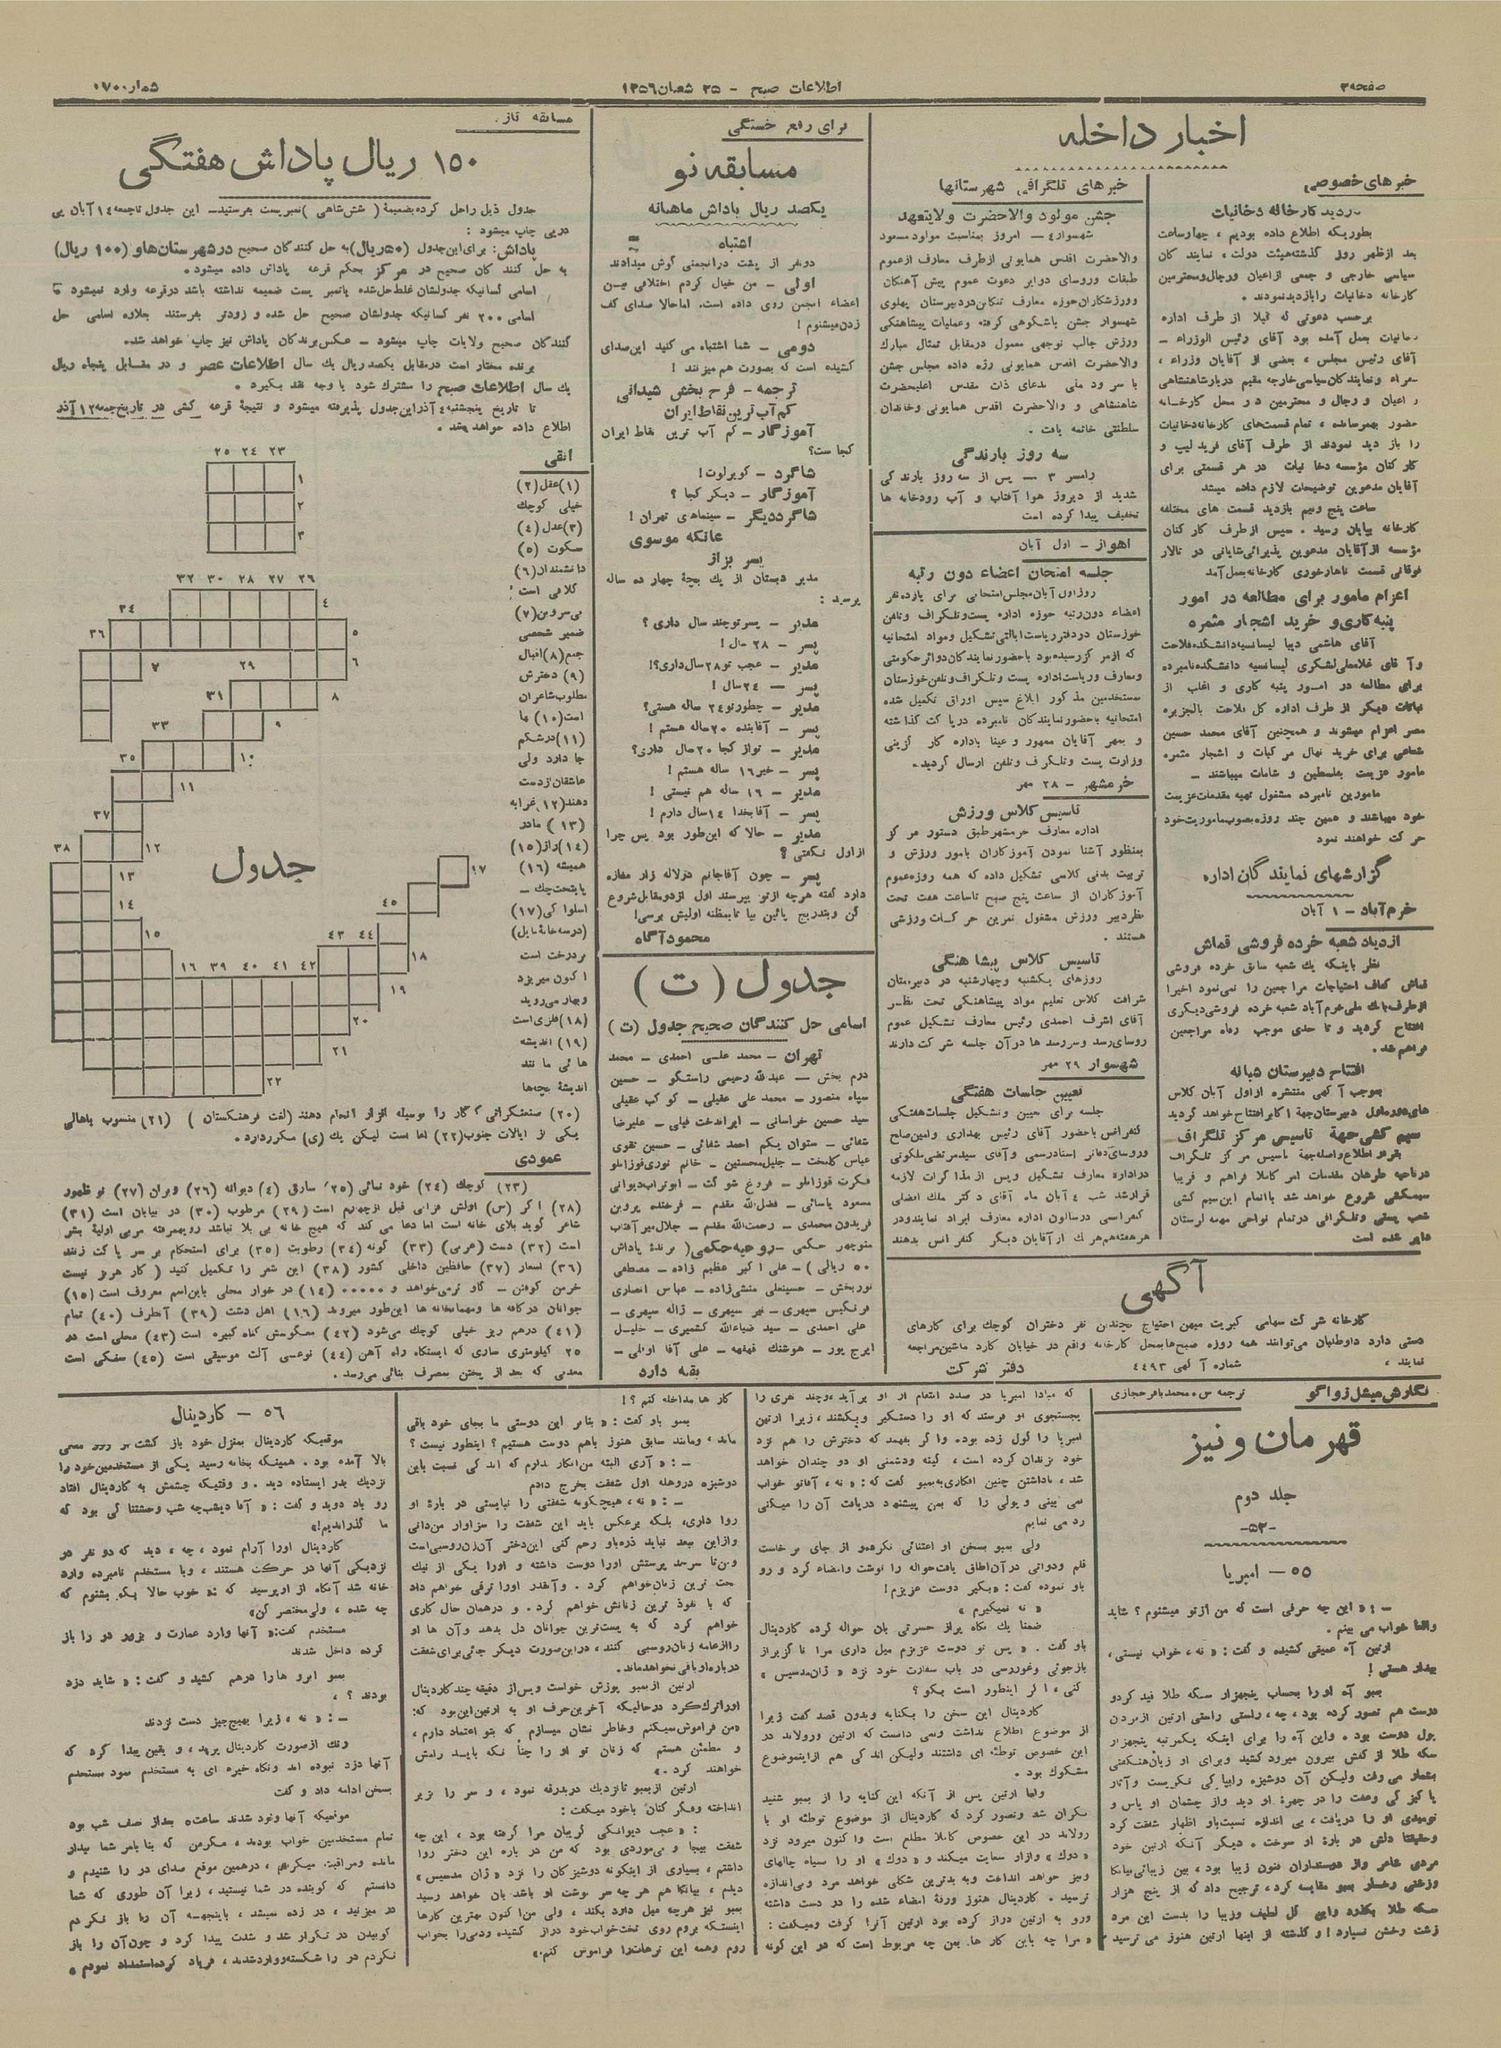 صفحه ۳
اطلاعات صبح - ۲۵ شعبان ۱۳۵۶
شماره ۱۷۰۰
اخبار داخله
خبرهای خصوصی
بازدید کارخانه دخانیات
بطوریکه اطلاع داده بودیم ، چهار ساعت
بعد ازظهر روز گذشته هیئت دولت ، نمایندگان
سیاسی خارجی و جمعی از اعیان ورجال ومحترمین
کارخانه دخانیات را بازدید نمودند .
برحسب دعوتی که قبلا از طرف اداره
دخانیات بعمل آمده بود آقای رئیس الوزراء -
آقای رئیس مجلس ، بعضی از آقایان وزراء ،
سفراء و نمایندگان سیاسی خارجه مقیم دربار شاهنشاهی
و اعیان و رجال و محترمین در محل کارخانه
حضور بهمرسانده ، تمام قسمت‌های کارخانه دخانیات
را باز دید نمودند از طرف آقای فرید لیپ و
کارکنان مؤسسه دخانیات در هر قسمتی برای
آقایان مدعوین توضیحات لازم داده میشد
ساعت پنج ونیم بازدید قسمت های مختلفه
کارخانه بپایان رسید . سپس ازطرف کارکنان
مؤسسه ازآقایان مدعوین پذیرائی شایانی در تالار
فوقانی قسمت ناهارخوری کارخانه بعمل آمد
اعزام مامور برای مطالعه در امور
پنبه کاری و خرید اشجار مثمره
آقای هاشمی دیبا لیسانسیه دانشکده فلاحت
وآقای غلامعلی لشگری لیسانسیه دانشکده نامبرده
برای مطالعه در امور پنبه کاری و اغلب از
نباتات دیگر از طرف اداره کل فلاحت بالجزیره
مصر اعزام میشوند و همچنین آقای محمد حسین
شعاعی برای خرید نهال مرکبات و اشجار مثمره
مامور عزیمت بفلسطین و شامات میباشند -
مامورین نامبرده مشغول تهیه مقدمات عزیمت
خود میباشند و همین چند روزه بصوب ماموریت خود
حرکت خواهند نمود
گزارشهای نمایندگان اداره
خرم‌آباد - ۱ آبان
ازدیاد شعبه خرده فروشی قماش
نظر باینکه یک شعبه سابق خرده فروشی
قماش کفاف احتیاجات مراجعین را نمی‌نمود اخیرا
ازطرف بانک ملی خرم‌آباد شعبه خرده فروشی دیگری
افتتاح گردید و تا حدی موجب رفاه مراجعین
فراهم شد .
افتتاح دبیرستان شبانه
بموجب آگهی منتشره ازاول آبان کلاس
های دوره اول دبیرستان جهة اکابر افتتاح خواهد گردید
سیم کشی جهة تاسیس مرکز تلگراف
بقرار اطلاع واصله جهة تاسیس مرکز تلگراف
درناحیه طرهان مقدمات امر کاملا فراهم و قریبا
سیمکشی شروع خواهد شد باانجام این سیم کشی
شعب پستی وتلگرافی درتمام نواحی مهمه لرستان
دایر شده است
خبرهای تلگرافی شهرستانها
جشن مولود والاحضرت ولایتعهد
شهسوار ۴ - امروز بمناسبت مولود مسعود
والاحضرت اقدس همایونی ازطرف معارف ازعموم
طبقات ورؤسای دوایر دعوت عموم پیش آهنگان
وورزشکاران حوزه معارف تنکابن دردبیرستان پهلوی
شهسوار جشن باشکوهی گرفته وعملیات پیشاهنگی
ورزش جالب توجهی معمول درمقابل تمثال مبارک
والاحضرت اقدس همایونی رژه داده مجلس جشن
با سرود ملی بدعای ذات مقدس اعلیحضرت
شاهنشاهی و والاحضرت اقدس همایونی وخاندان
سلطنتی خاتمه یافت .
سه روز بارندگی
رامسر ۳ - پس از سه روز بارندگی
شدید از دیروز هوا آفتاب و آب رودخانه ها
تخفیف پیدا کرده است
اهواز - اول آبان
جلسه امتحان اعضاء دون رتبه
روز اول آبان مجلس امتحانی برای یازده نفر
اعضاء دون رتبه حوزه اداره پست وتلگراف وتلفن
خوزستان دردفتر ریاست ایالتی تشکیل ومواد امتحانیه
که ازمرکز رسیده بود باحضور نمایندگان دوائر حکومتی
ومعارف وریاست اداره پست وتلگراف وتلفن خوزستان
بمستخدمین مذکور ابلاغ سپس اوراق تکمیل شده
امتحانیه باحضور نمایندگان نامبرده در پاکت گذاشته
و بمهر آقایان ممهور و عینا باداره کارگزینی
وزارت پست وتلگراف وتلفن ارسال گردید .
خرمشهر - ۲۸ مهر
تاسیس کلاس ورزش
اداره معارف خرمشهر طبق دستور مرکز
بمنظور آشنا نمودن آموزگاران بامور ورزش و
تربیت بدنی کلاسی تشکیل داده که همه روزه عموم
آموزگاران از ساعت پنج صبح تاساعت هفت تحت
نظر دبیر ورزش مشغول تمرین حرکات ورزشی
هستند .
تاسیس کلاس پیشاهنگی
روزهای یکشنبه وچهارشنبه در دبیرستان
شرافت کلاس تعلیم مواد پیشاهنگی تحت نظر
آقای اشرف احمدی رئیس معارف تشکیل عموم
رؤسای رسد وسررسدها درآن جلسه شرکت دارند
شهسوار ۲۹ مهر
تعیین جلسات هفتگی
جلسه برای تعیین وتشکیل جلسات هفتگی
کنفرانس باحضور آقای رئیس بهداری وامین صلح
ورؤسای دفاتر اسناد رسمی وآقای سیدمرتضی ملکوتی
دراداره معارف تشکیل وپس از مذاکرات لازمه
قرارشد شب ۴ آبان ماه آقای دکتر ملک افضلی
کنفرانسی درسالون اداره معارف ایراد نمایند ودر
هرهفته هم هریک ازآقایان دیگر کنفرانس بدهند
آگهی
کارخانه شرکت سهامی کبریت میهن احتیاج بچندین نفر دختران کوچک برای کارهای
دستی دارد داوطلبان می‌توانند همه روزه صبح‌ها بمحل کارخانه واقع در خیابان کارد ماشین مراجعه
نمایند ،
شماره آگهی ۴۴۹۳
دفتر شرکت
برای رفع خستگی
مسابقه نو
یکصد ریال پاداش ماهانه
اشتباه
دونفر از پشت درانجمنی گوش میدادند
اولی - من خیال کردم اختلافی بین
اعضاء انجمن روی داده است. اماحالا صدای کف
زدن میشنوم !
دومی - شما اشتباه می کنید این صدای
کشیده است که بصورت هم میزنند !
ترجمه - فرح بخش شیدانی
کم آب ترین نقاط ایران
آموزگار - کم آب ترین نقاط ایران
کجا ست؟
شاگرد - کویرلوت !
آموزگار - دیگر کجا ؟
شاگرد دیگر - سینماهای تهران !
عاتکه موسوی
پسر بزاز
مدیر دبستان از یک بچۀ چهارده ساله
پرسید :
مدیر - پسر تو چند سال داری ؟
پسر - ۲۸ سال !
مدیر - عجب تو ۲۸ سال داری؟!
پسر - ۲۴ سال !
مدیر - چطور تو ۲۴ ساله هستی؟
پسر - آقا بنده ۲۰ ساله هستم !
مدیر - تو از کجا ۲۰ سال داری؟
پسر - خیر ۱۶ ساله هستم !
مدیر - ۱۶ ساله هم نیستی !
پسر - آقا بخدا ۱۴ سال دارم !
مدیر - حالا که این‌طور بود پس چرا
ازاول نگفتی ؟
پسر - چون آقاجانم درلاله زار مغازه
دارد گفته هرچه ازتو بپرسند اول ازدومقابل شروع
کن وبتدریج پائین بیا تابمظنه اولیش برسی!
محمودآگاه
جدول ( ت )
اسامی حل کنندگان صحیح جدول ( ت )
تهران - محمد علی احمدی - محمد
درم بخش - عبدالله رحیمی راستگو - حسین
سپاه منصور - محمد علی عقیلی - کوکب عقیلی
سید حسین خراسانی - ایراندخت فیلی - علیرضا
شفائی - ستوان یکم احمد شفائی - حسین تقوی
عباس کلمت - جلیل محسنین - خانم نوری قوزانلو
فکرت قوزانلو - فروغ شوکت - ابوتراب دیوانی
مسعود یاسائی - فضل‌الله مقدم - فرخنده پروین
فریدون محمدی - رحمت‌الله مقدم - جلال میرآفتاب
منوچهر حکمی - روحیه حکمی ( برندۀ پاداش
۵۰ ریالی ) - علی اکبر عظیم زاده - مصطفی
نوربخش - حسینعلی منشی‌زاده - عباس انصاری
فرنگیس سپهری - نیر سپهری - ژاله سپهری -
علی احمدی - سید ضیاءالله کشمیری - خلیل
ایرج پور - هوشنگ قهقهه - علی آقا اوفلی -
بقیه دارد
مسابقه تازه
۱۵۰ ریال پاداش هفتگی
جدول ذیل راحل کرده بضمیمۀ ( شش شاهی ) تمبر پست بفرستید - این جدول تا جمعه ۱۴ آبان پی
درپی چاپ میشود :
پاداش: برای این جدول (۵۰ ریال) به حل کنندگان صحیح در شهرستان‌ها و (۱۰۰ ریال)
به حل کنندگان صحیح در مرکز بحکم قرعه پاداش داده میشود .
اسامی کسانیکه جدولشان غلط حل شده یا تمبر پست ضمیمه نداشته باشد درقرعه وارد نمیشود
اسامی ۲۰۰ نفر کسانیکه جدولشان صحیح حل شده و زودتر بفرستند بعلاوه اسامی حل
کنندگان صحیح ولایات چاپ میشود - عکس برندگان پاداش نیز چاپ خواهد شد .
برنده مختار است درمقابل یکصد ریال یک سال اطلاعات عصر و در مقابل پنجاه ریال
یک سال اطلاعات صبح را مشترک شود یا وجه نقد بگیرد .
تا تاریخ پنجشنبه ۴ آذر این جدول پذیرفته میشود و نتیجۀ قرعه کشی در تاریخ جمعه ۱۲ آذر
اطلاع داده خواهد شد .
افقی
(۱) عقل (۲)
خیلی کوچک
(۳) عدل (۴)
سکوت (۵)
دانشمندان (۶)
گلابی است !
بی سروبن (۷)
ضمیر شخصی
جمع (۸) اقبال
(۹) دخترش
مطلوب شاعران
است (۱۰) ها
(۱۱) درشکم
جا دارد ولی
عاشقان ازدست
دهند (۱۲) غرابه
(۱۳) مادر
(۱۴) راز (۱۵)
همیشه (۱۶)
پایتخت چک -
اسلواکی (۱۷)
بردرخت است
اکنون میریزد
وبهار می‌روید
(۱۸) فلزی است
(۱۹) اندیشه
هائی مانند
اندیشۀ بچه‌ها
جدول
۲۵ ۲۴ ۲۳
۱
۲
۳
۳۲ ۳۰ ۲۸ ۲۷ ۲۶
۳۴
۴
۳۶
۵
۷
۲۹
۶
۳۱
۸
۳۳
۹
۳۵
۱۰
۱۱
۳۷
۳۸
۱۲
۱۷
۱۳
۱۴
۴۵
۱۵
۴۳ ۴۴
۱۸
۱۶ ۳۹ ۴۰ ۴۱ ۴۲
۱۹
۲۰
۲۱
۲۲
(۲۰) صنعتگرانی که کار را بوسیله افزار انجام دهند (لغت فرهنگستان ) (۲۱) منسوب باهالی
یکی از ایالات جنوب (۲۲) اغما است لیکن یک (ی) مکرر دارد .
عمودی
(۲۳) کوچک (۲۴) خود نمائی (۲۵) سارق (۴) دیوانه (۲۶) ویران (۲۷) نو ظهور
(۲۸) اگر (س) اولش قبل ازچهلم است (۲۹) مرطوب (۳۰) در بیابان است (۳۱)
شاعر گوید بلای خانه است اما دعا می کند که هیچ خانه بی بلا نباشد رویهمرفته مربی اولیۀ بشر
است (۳۲) دست (عربی) (۳۳) گونه (۳۴) رطوبت (۳۵) برای استحکام بر سر پاکت زنند
(۳۶) اسعار (۳۷) حافظین داخلی کشور (۳۸) این شعر را تکمیل کنید ( کار هر بز نیست
خرمن کوفتن - گاو نر می‌خواهد و ..... (۱۴) در خوار محلی باین اسم معروف است (۱۵)
جوانان درکافه ها ومهمانخانه ها این‌طور میروند (۱۶) اهل دشت (۳۹) آنطرف (۴۰) تمام
(۴۱) درهم ریز خیلی کوچک می‌شود (۴۲) معکوسش گناه کبیره است (۴۳) محلی است در
۲۵ کیلومتری ساری که ایستگاه راه آهن (۴۴) نوعی آلت موسیقی است (۴۵) سنگی است
معدنی که بعد از پختن بمصرف بنائی می‌رسد .
نگارش میشل زواگو
ترجمه س . محمدباقر حجازی
قهرمان ونیز
جلد دوم
-۵۳-
۵۵ - امپریا
- : « این چه حرفی است که من ازتو میشنوم ؟ شاید
واقعا خواب می بینم .
ارتین آه عمیقی کشیده و گفت : « نه ، خواب نیستی ،
بیدار هستی !
بمبو آه اورا بحساب پنجهزار سکه طلا قید کرد و
دوست هم تصور کرده بود ، چه ، راستی راستی ارتین ازمردن
پول دوست بود . واین آه را برای اینکه یکمرتبه پنجهزار
سکه طلا از کفش بیرون میرود کشید وبرای او زیان هنگفتی
بشمار می‌رفت ولیکن آن دوشیزه زیبا نگریست وآثار
پاکیزگی وعفت را در چهرۀ او دید واز چشمان او یاس و
نومیدی او را دریافت ، بی اندازه نسبت باو اظهار شفقت کرد
وحقیقتا دلش در بارۀ او سوخت . دیگر آنکه ارتین خود
مردی شاعر واز دوستداران فنون زیبا بود ، بین زیبائی بیانکا
وزشتی رخسار بمبو مقایسه کرد ، ترجیح داد که از پنج هزار
سکه طلا بگذرد واین گل لطیف وزیبا را بدست این مرد
زشت وخشن نسپارد ! و گذشته از اینها ارتین هنوز می ترسید
که مبادا امپریا در صدد انتقام از او برآید ، وچند نفری را
بجستجوی او فرستد که او را دستگیر وبکشند ، زیرا ارتین
امپریا را گول زده بود . واگر بفهمد که دخترش را هم نزد
خود زندان کرده است ، کینه ودشمنی او دو چندان خواهد
شد ، باداشتن چنین افکاری به بمبو گفت که: « نه ، آقا تو خواب
نمی بینی و پولی را که بمن پیشنهاد دریافت آن را میکنی
رد می نمایم
ولی بمبو بسخن او اعتنائی نکرده و از جای برخاست
قلم ودواتی درآن اطاق یافت حواله را نوشت وامضاء کرد و رو
باو نموده گفت : « بگیر دوست عزیزم !
« نه نمیگیرم »
ضمنا یک نگاه پراز حسرتی بان حواله کرده کاردینال
باو گفت . « پس تو دوست عزیزم میل داری مرا ناگزیر از
بازجوئی وغوررسی در باب سفارت خود نزد « ژان مدسیس »
کنی ، اگر اینطور است بگو ؟
کاردینال این سخن را بکنایه وبدون قصد گفت زیرا
از موضوع اطلاع نداشت ونمی دانست که ارتین ورولاند در
این خصوص توطئه ای داشتند ولیکن اندکی هم ازاینموضوع
مشکوک بود .
واما ارتین پس از آنکه این کنایه را از بمبو شنید
نگران شد وتصور کرد که کاردینال از موضوع توطئه او با
رولاند در این خصوص کاملا مطلع است واکنون میرود نزد
« دوک » وازاو سعایت میکند و « دوک » او را سیاه چالهای
ونیز خواهد انداخت وبه بدترین شکلی خواهد مرد وبی‌اندازه
ترسید . کاردینال هنوز ورقۀ امضاء شده را در دست داشته
ورو به ارتین دراز کرده بود ارتین آنرا گرفت ومیگفت :
« مرا چه باین کار ها. بمن چه مربوط است که در این گونه
کار ها مداخله کنم ؟ !
بمبو باو گفت : « بنابر این دوستی ما بجای خود باقی
ماند ، ومانند سابق هنوز باهم دوست هستیم ؟ اینطور نیست ؟
- : « آری البته من انکار ندارم که اندکی نسبت باین
دوشیزه دروهله اول شفقت بخرج دادم
- : « نه ، هیچگونه شفقتی را نبایستی در بارۀ او
روا داری، بلکه برعکس باید این شفقت را سزاوار من دانی
وازاین ببعد نباید ذره‌ای باو رحم کنی این دختر آن زن روسپی است
ومن تا سرحد پرستش اورا دوست داشته و اورا یکی از نیک
بخت ترین زنان خواهم کرد . وآنقدر اورا ترقی خواهم داد
که با نفوذ ترین زنانش خواهم کرد . و درهمان حال کاری
خواهم کرد که به پست‌ترین جوانان دل بدهد وآن ها او
را ازعامه زنان روسپی کنند ، دراین صورت دیگر جائی برای شفقت
درباره او باقی نخواهد ماند .
ارتین ازبمبو پوزش خواست وپس از دقیقه چند کاردینال
اورا ترک کرد درحالیکه آخرین حرف او به ارتین این بود که:
«من فراموش میکنم وخاطر نشان میسازم که بتو اعتماد دارم ،
و مطمئن هستم که زنان تو او را چنانکه باید رامش
خواهند کرد . »
ارتین ازبمبو تانزدیک دربدرقه نمود ، و سر را بزیر
انداخته وفکر کنان باخود میگفت :
: « عجب دیوانگی گریبان مرا گرفته بود ، این چه
شفقت بیجا و بی‌موردی بود که من در باره این دختر روا
داشتم ، بسیاری از اینگونه دوشیزگان را نزد « ژان مدسیس »
دیدم ، بیانکا هم هر چه سر نوشت او باشد بان خواهد رسید
بمبو نیز هرچه میل دارد بکند ، ولی من اکنون بهترین کارها
اینستکه بروم روی تخت‌خواب خود دراز کشیده ودمی را بخواب
روم وهمه این ترهات را فراموش کنم.»
۵۶ - کاردینال
موقعیکه کاردینال بمنزل خود باز گشت
بالا آمده بود . همینکه بخانه رسید یکی از مستخدمین خود را
نزدیک بدر ایستاده دید . و وقتیکه چشمش به کاردینال افتاد
رو باو دوید و گفت : « آقا دیشب چه شب وحشتناکی بود که
ما گذراندیم!»
کاردینال اورا آرام نمود ، چه ، دید که دو نفر در
نزدیکی آنها در حرکت هستند ، وبا مستخدم نامبرده وارد
خانه شد آنگاه از او پرسید که :« خوب حالا بگو بشنوم که
چه شده ، ولی مختصر کن»
مستخدم گفت: « آنها وارد عمارت و بزور در را باز
کرده داخل شدند
بمبو ابرو ها را درهم کشید و گفت : « شاید دزد
بودند ؟ ،
- : « نه ، زیرا بهیچ چیز دست نزدند
رنگ ازصورت کاردینال پرید ، و یقین پیدا کرد که
آنها دزد نبوده اند ونگاه خیره ای به مستخدم نمود مستخدم
بسخن ادامه داد و گفت
موقعیکه آنها وارد شدند ساعت ۵ بعداز نصف شب بود
تمام مستخدمین خواب بودند ، مگرمن که بنا بامر شما بیدار
مانده ومراقبت میکردم ، درهمین موقع صدای در را شنیدم و
دانستم که کوبنده در شما نیستید ، زیرا آن طوری که شما
در میزنید ، در زده نمیشد ، باینجهة آن را باز نکردم
کوبیدن در تکرار شد و شدت پیدا کرد و چون آن را باز
نکردم در را شکسته ووارد شدند ، فریاد کرده استمداد نمودم «